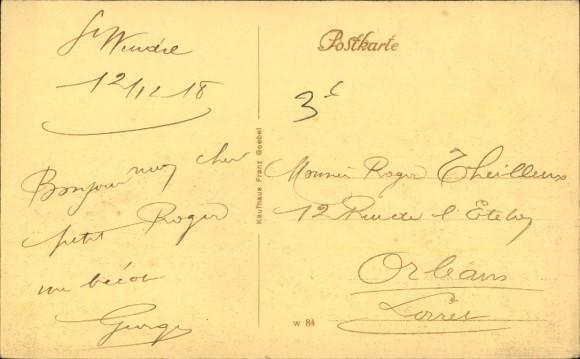 St Wendel
12/12 18
Bonjour mon cher
petit Roger
un bécot
Georges
Kaufhaus Franz Goebel
Postkarte
3f
Monsieur Roger Theilleux
12 Rue de l'
Orléans
Loiret
W 84